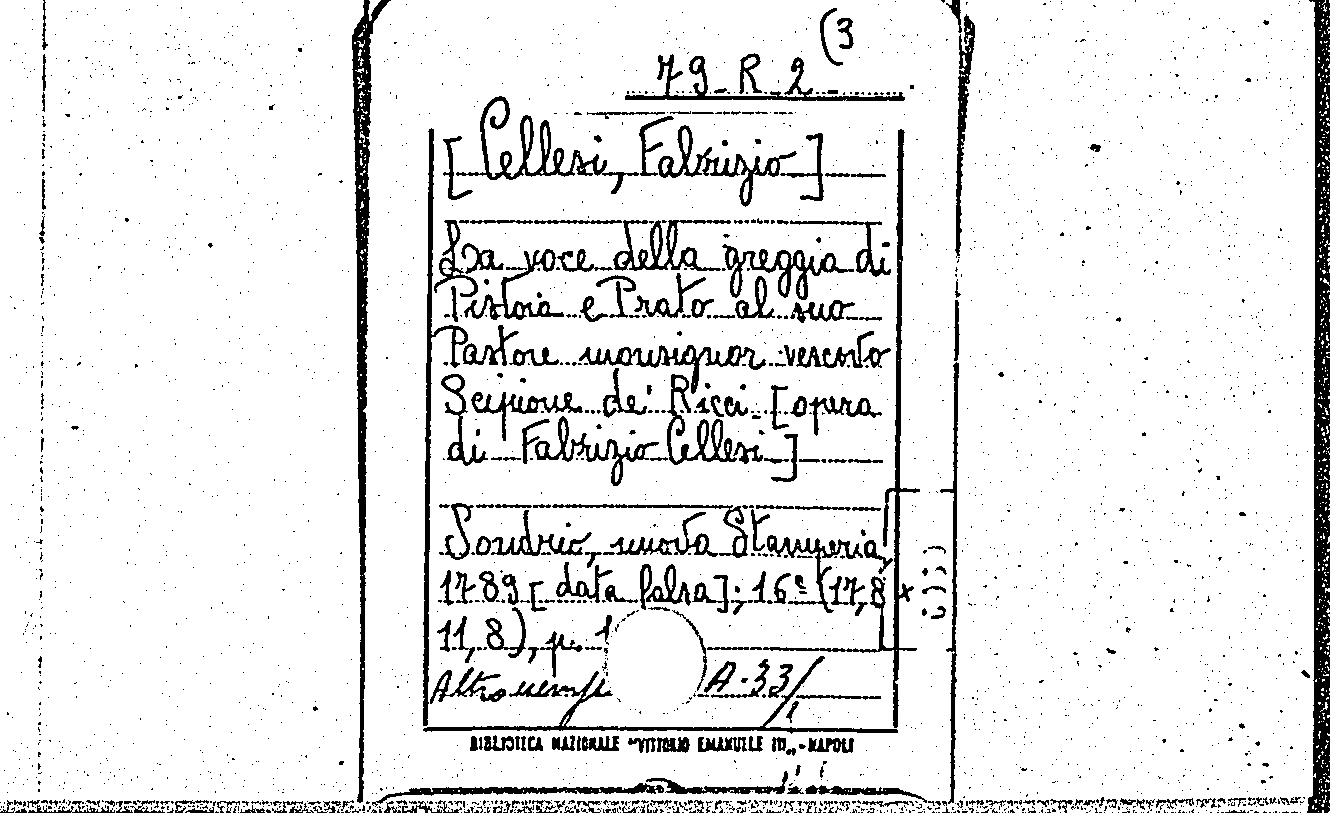 (3
79-R 2-
[Cellesi, Fabrizio]
La voce della greggia di
Pistoia e Prato al suo
Pastore monsignor vescovo
Scipione de' Ricci. [opera
di Fabrizio Cellesi]
Sondrio, nuova Stamperia,
1789 [data falsa]; 16º (17,8 x
11,8), p. 1
Altro esempl A-33/
BIBLIOTECA NAZIONALE "VITTORIO EMANUELE III" - NAPOLI